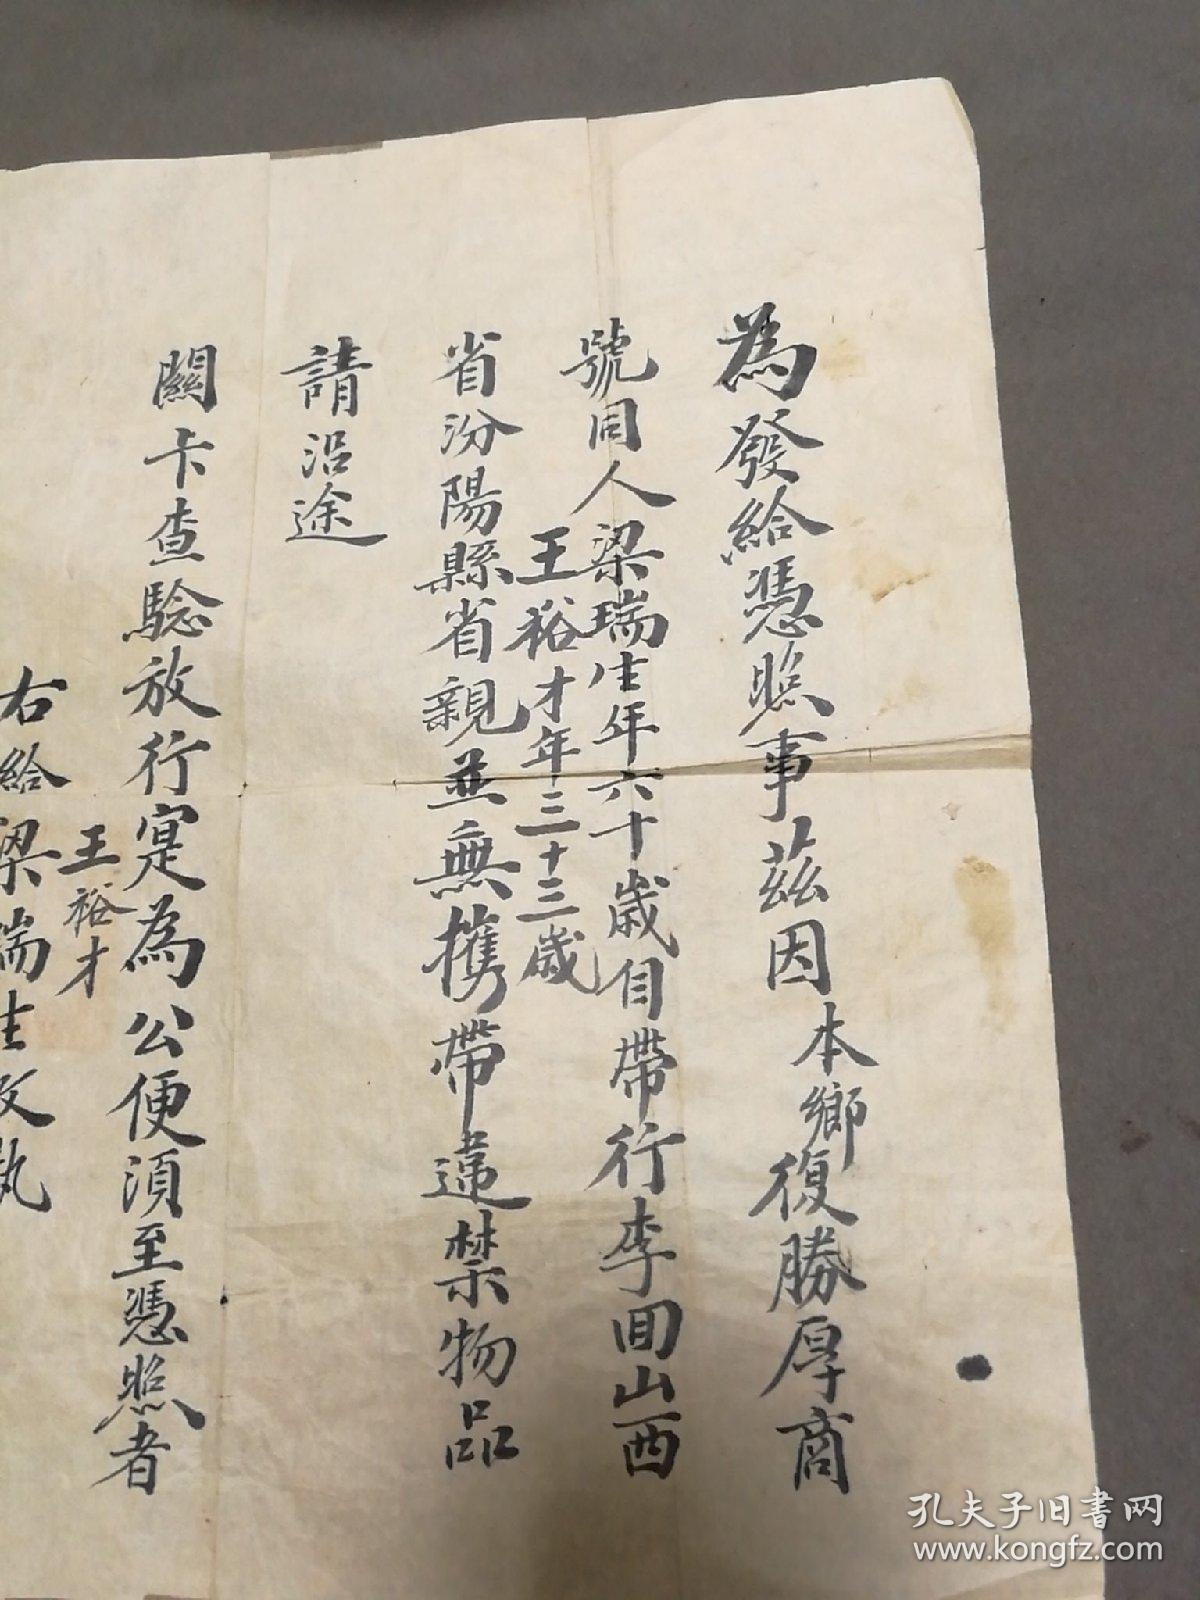 為發給憑照事茲因本鄉復勝厚商
號同人梁瑞生年六十歲自帶行李回山西
王裕才年三十三歲
省汾陽縣省親並無攜帶違禁物品
請沿途
關卡查驗放行寔為公便須至憑照者
右給梁瑞生收執
王裕才
孔夫子旧书网
www.kongfz.com